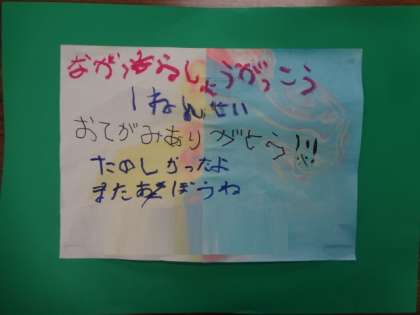 ながうらしょうがっこう
1ねんせい
おてがみありがとう!!!
たのしかったよ
またあそぼうね